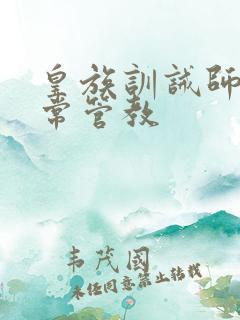 皇族訓誡師
常管教
韦茂國
未经同意禁止转载